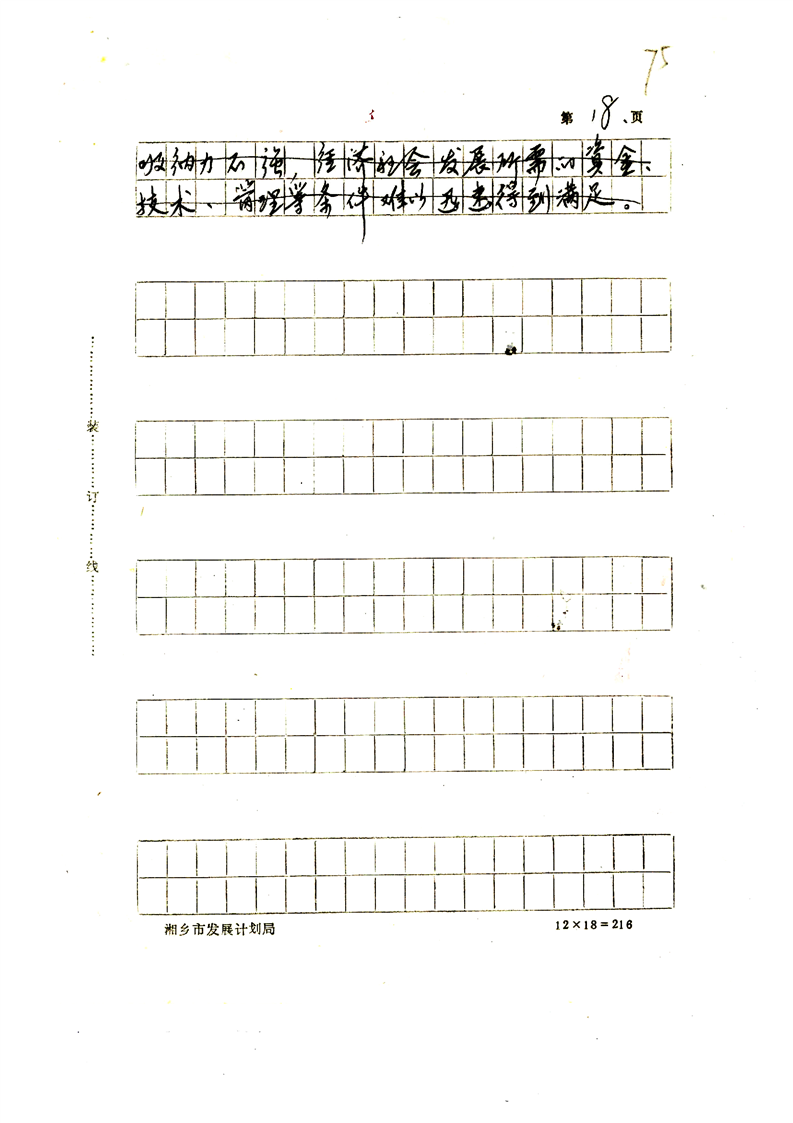 75
第18页
吸纳力不强,经济社会发展所需的资金、
技术、管理等条件难以迅速得到满足。
装
订
线
湘乡市发展计划局
12×18=216